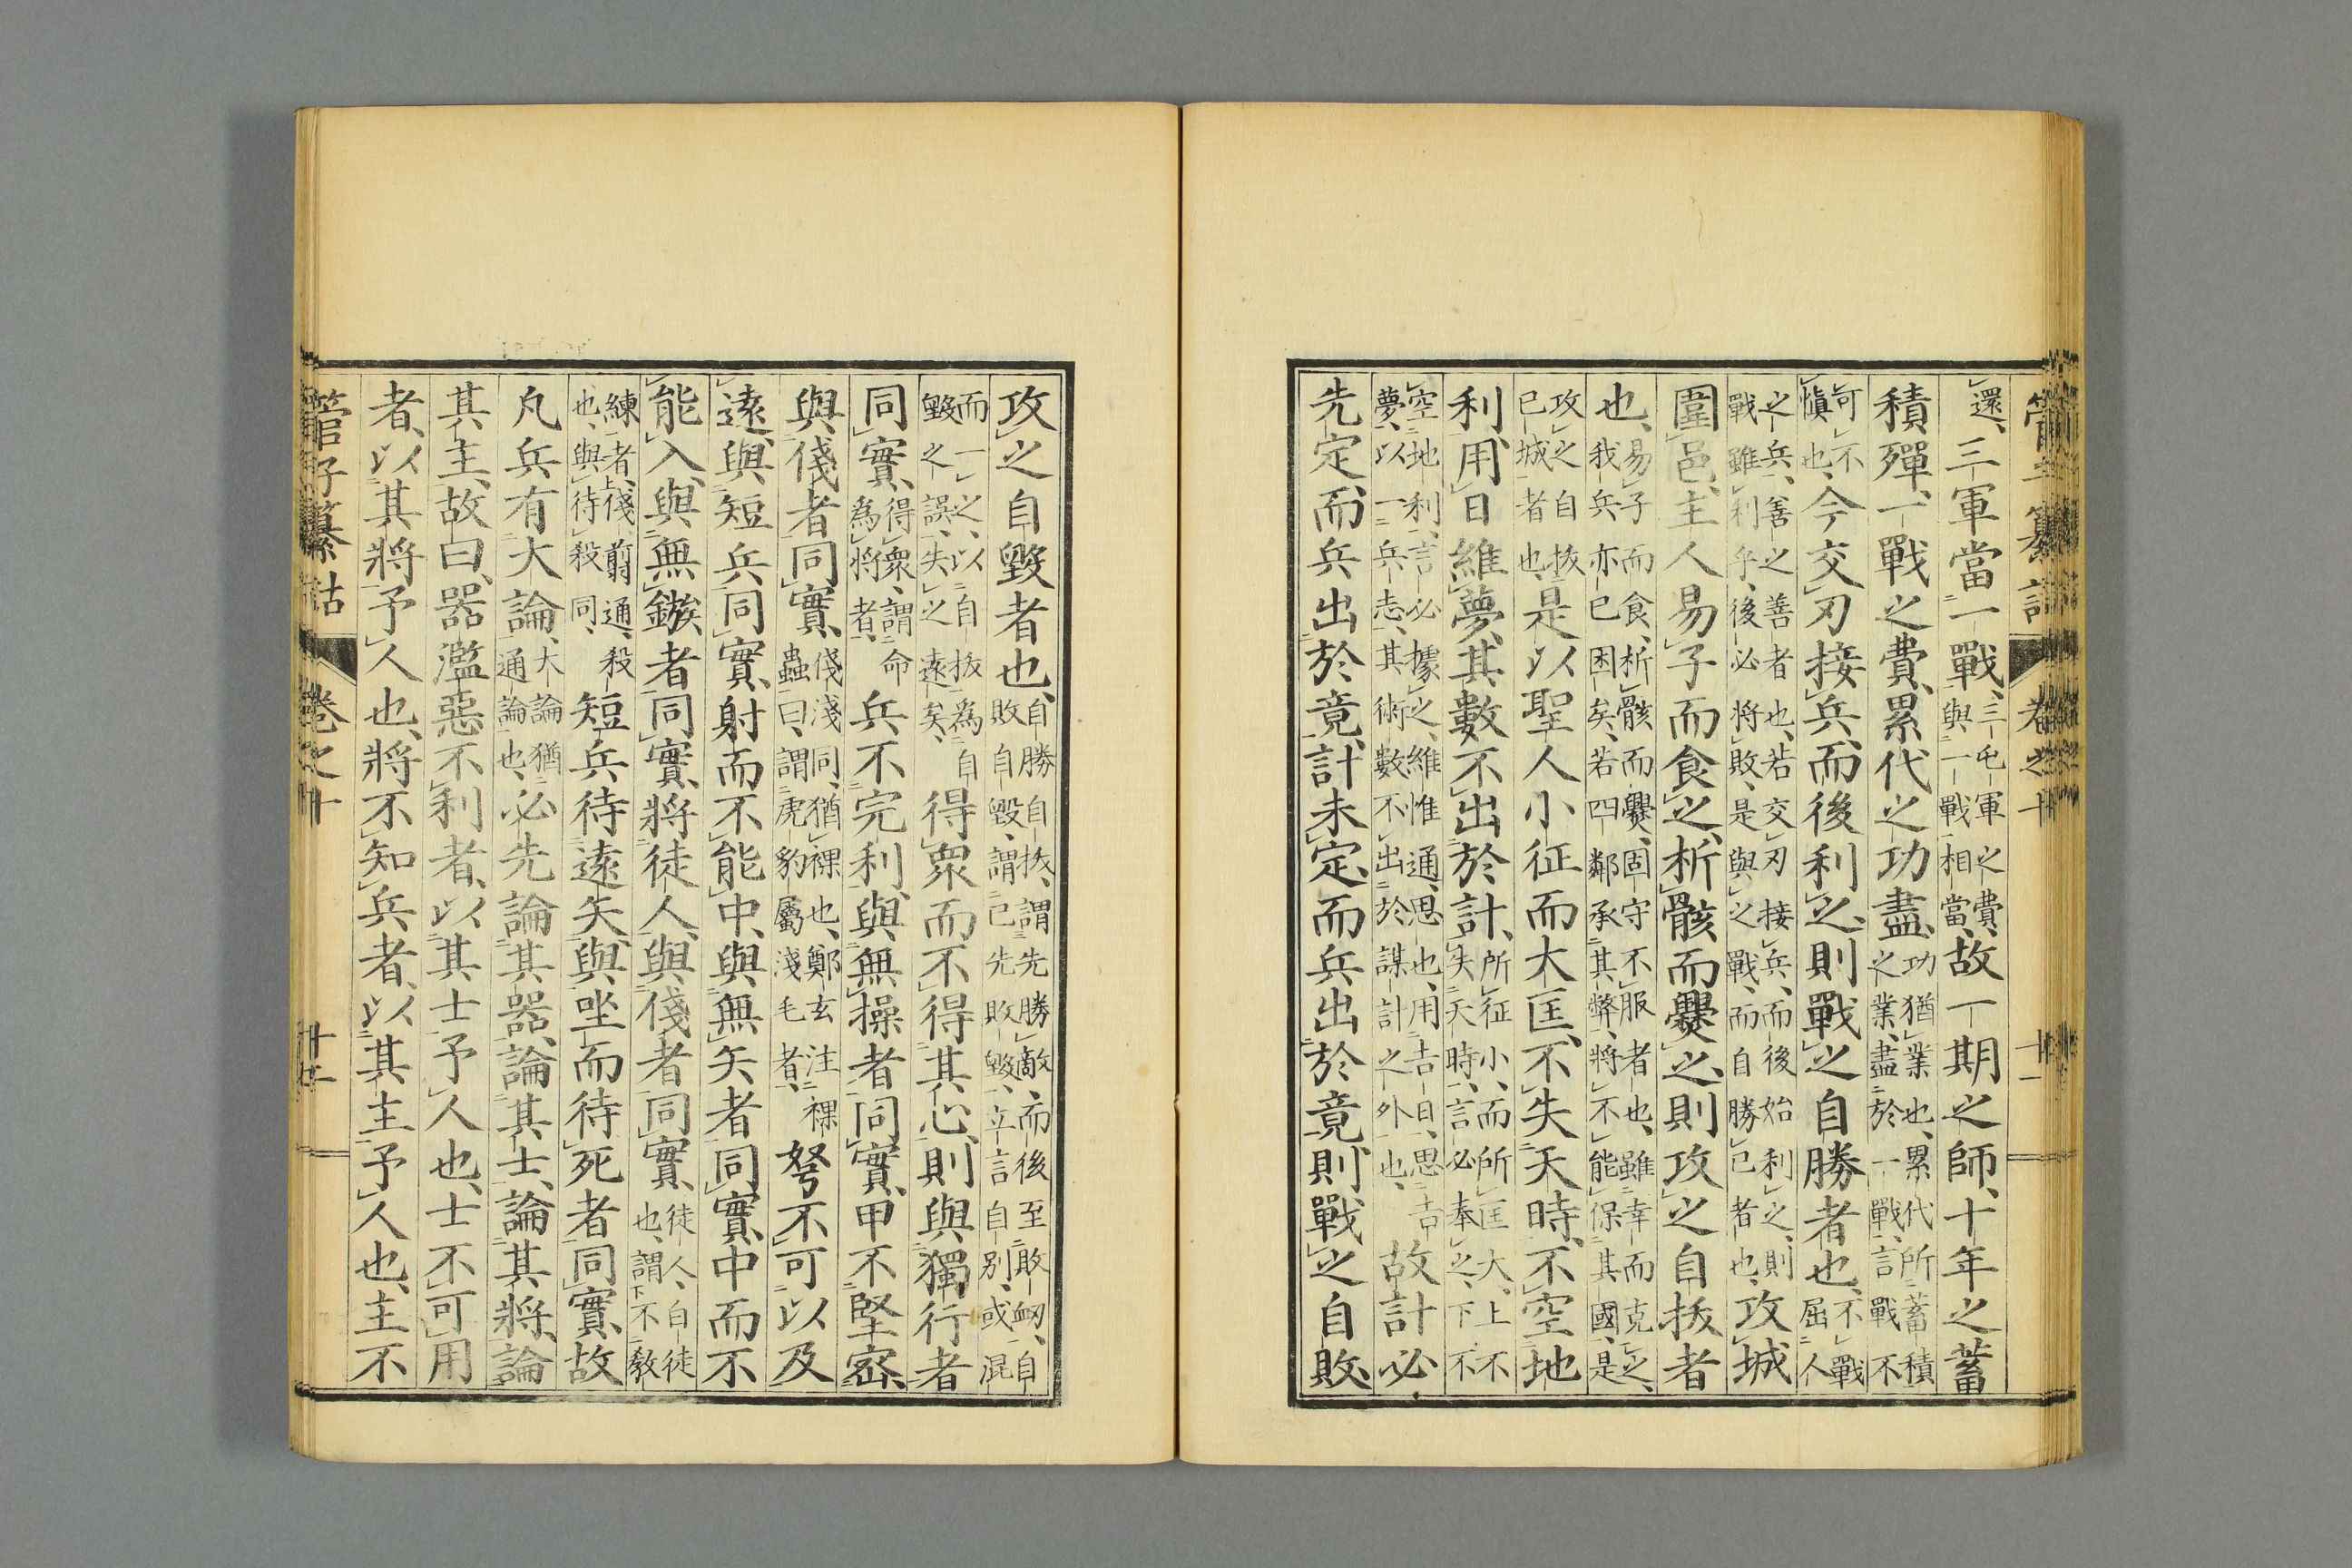 管子纂詁 卷之十 十一
還、三軍當一戰、三屯軍之費、與一戰相當、故一期之師、十年之蓄
積殫、一戰之費、累代之功盡、功猶業也、累代所蓄積之業、盡於一戰、言戰不
可不慎也、今交刃接兵、而後利之、則戰之自勝者也、不戰屈人
之兵、善之善者也、若交刃接兵、而後始利之、則戰雖利乎、後必將敗、是與之戰、而自勝己者也、攻城
圍邑、主人易子而食之、析骸而爨之、則攻之自拔者
也、易子而食、析骸而爨、固守不服者也、雖幸而克之、我兵亦已困矣、若四鄰承其弊、將不能保其國、是
攻之自拔己城者也、是以聖人小征而大匡、不失天時、不空地
利、用日維夢、其數不出於計、所征小、而所匡大、上不失天時、言必奉之、下不
空地利、言必據之、維惟通、思也、用吉日、思吉夢、以一兵志、其術數不出於謀計之外也、故計必
先定、而兵出於竟、計未定、而兵出於竟、則戰之自敗、
攻之自毀者也、自勝自拔、謂先勝敵、而後至敗衂、自敗自毀、謂己先敗毀、立言自別、或混
而一之、以自拔為自毀之誤、失之遠矣、得衆而不得其心、則與獨行者
同實、得衆、謂命為將者、兵不完利、與無操者同實、甲不堅密、
與俴者同實、俴淺同、猶裸也、鄭玄注裸蟲曰、謂虎豹屬淺毛者、弩不可以及
遠、與短兵同實、射而不能中、與無矢者同實、中而不
能入、與無鏃者同實、將徒人、與俴者同實、徒人、白徒也、謂不敎
練者、俴翦通、殺也、與待殺同、短兵待遠矢、與坐而待死者同實、故
凡兵有大論、大論猶通論也、必先論其器、論其士、論其將、論
其主、故曰、器濫惡不利者、以其士予人也、士不可用
者、以其將予人也、將不知兵者、以其主予人也、主不
管子纂詁 卷之十 十一